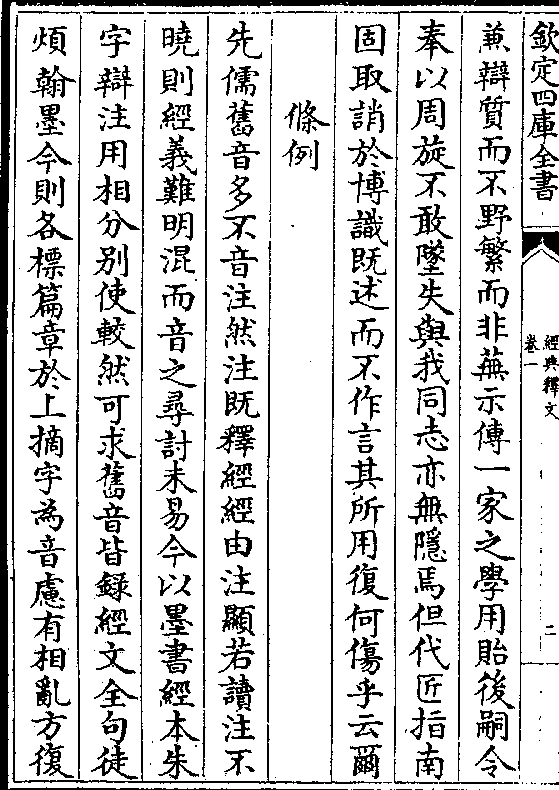 欽定四庫全書
經典釋文
卷一
二
兼辯質而不野繁而非蕪示傳一家之學用貽後嗣令
奉以周旋不敢墜失與我同志亦無隱焉但代匠指南
固取誚於博識既述而不作言其所用復何傷乎云爾
條例
先儒舊音多不音注然注既釋經經由注顯若讀注不
曉則經義難明混而音之尋討未易今以墨書經本朱
字辯注用相分別使較然可求舊音皆錄經文全句徒
煩翰墨今則各標篇章於上摘字為音慮有相亂方復